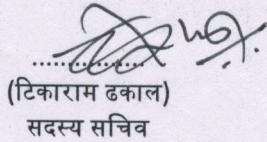 ..................
(टिकाराम ढकाल)
सदस्य सचिव